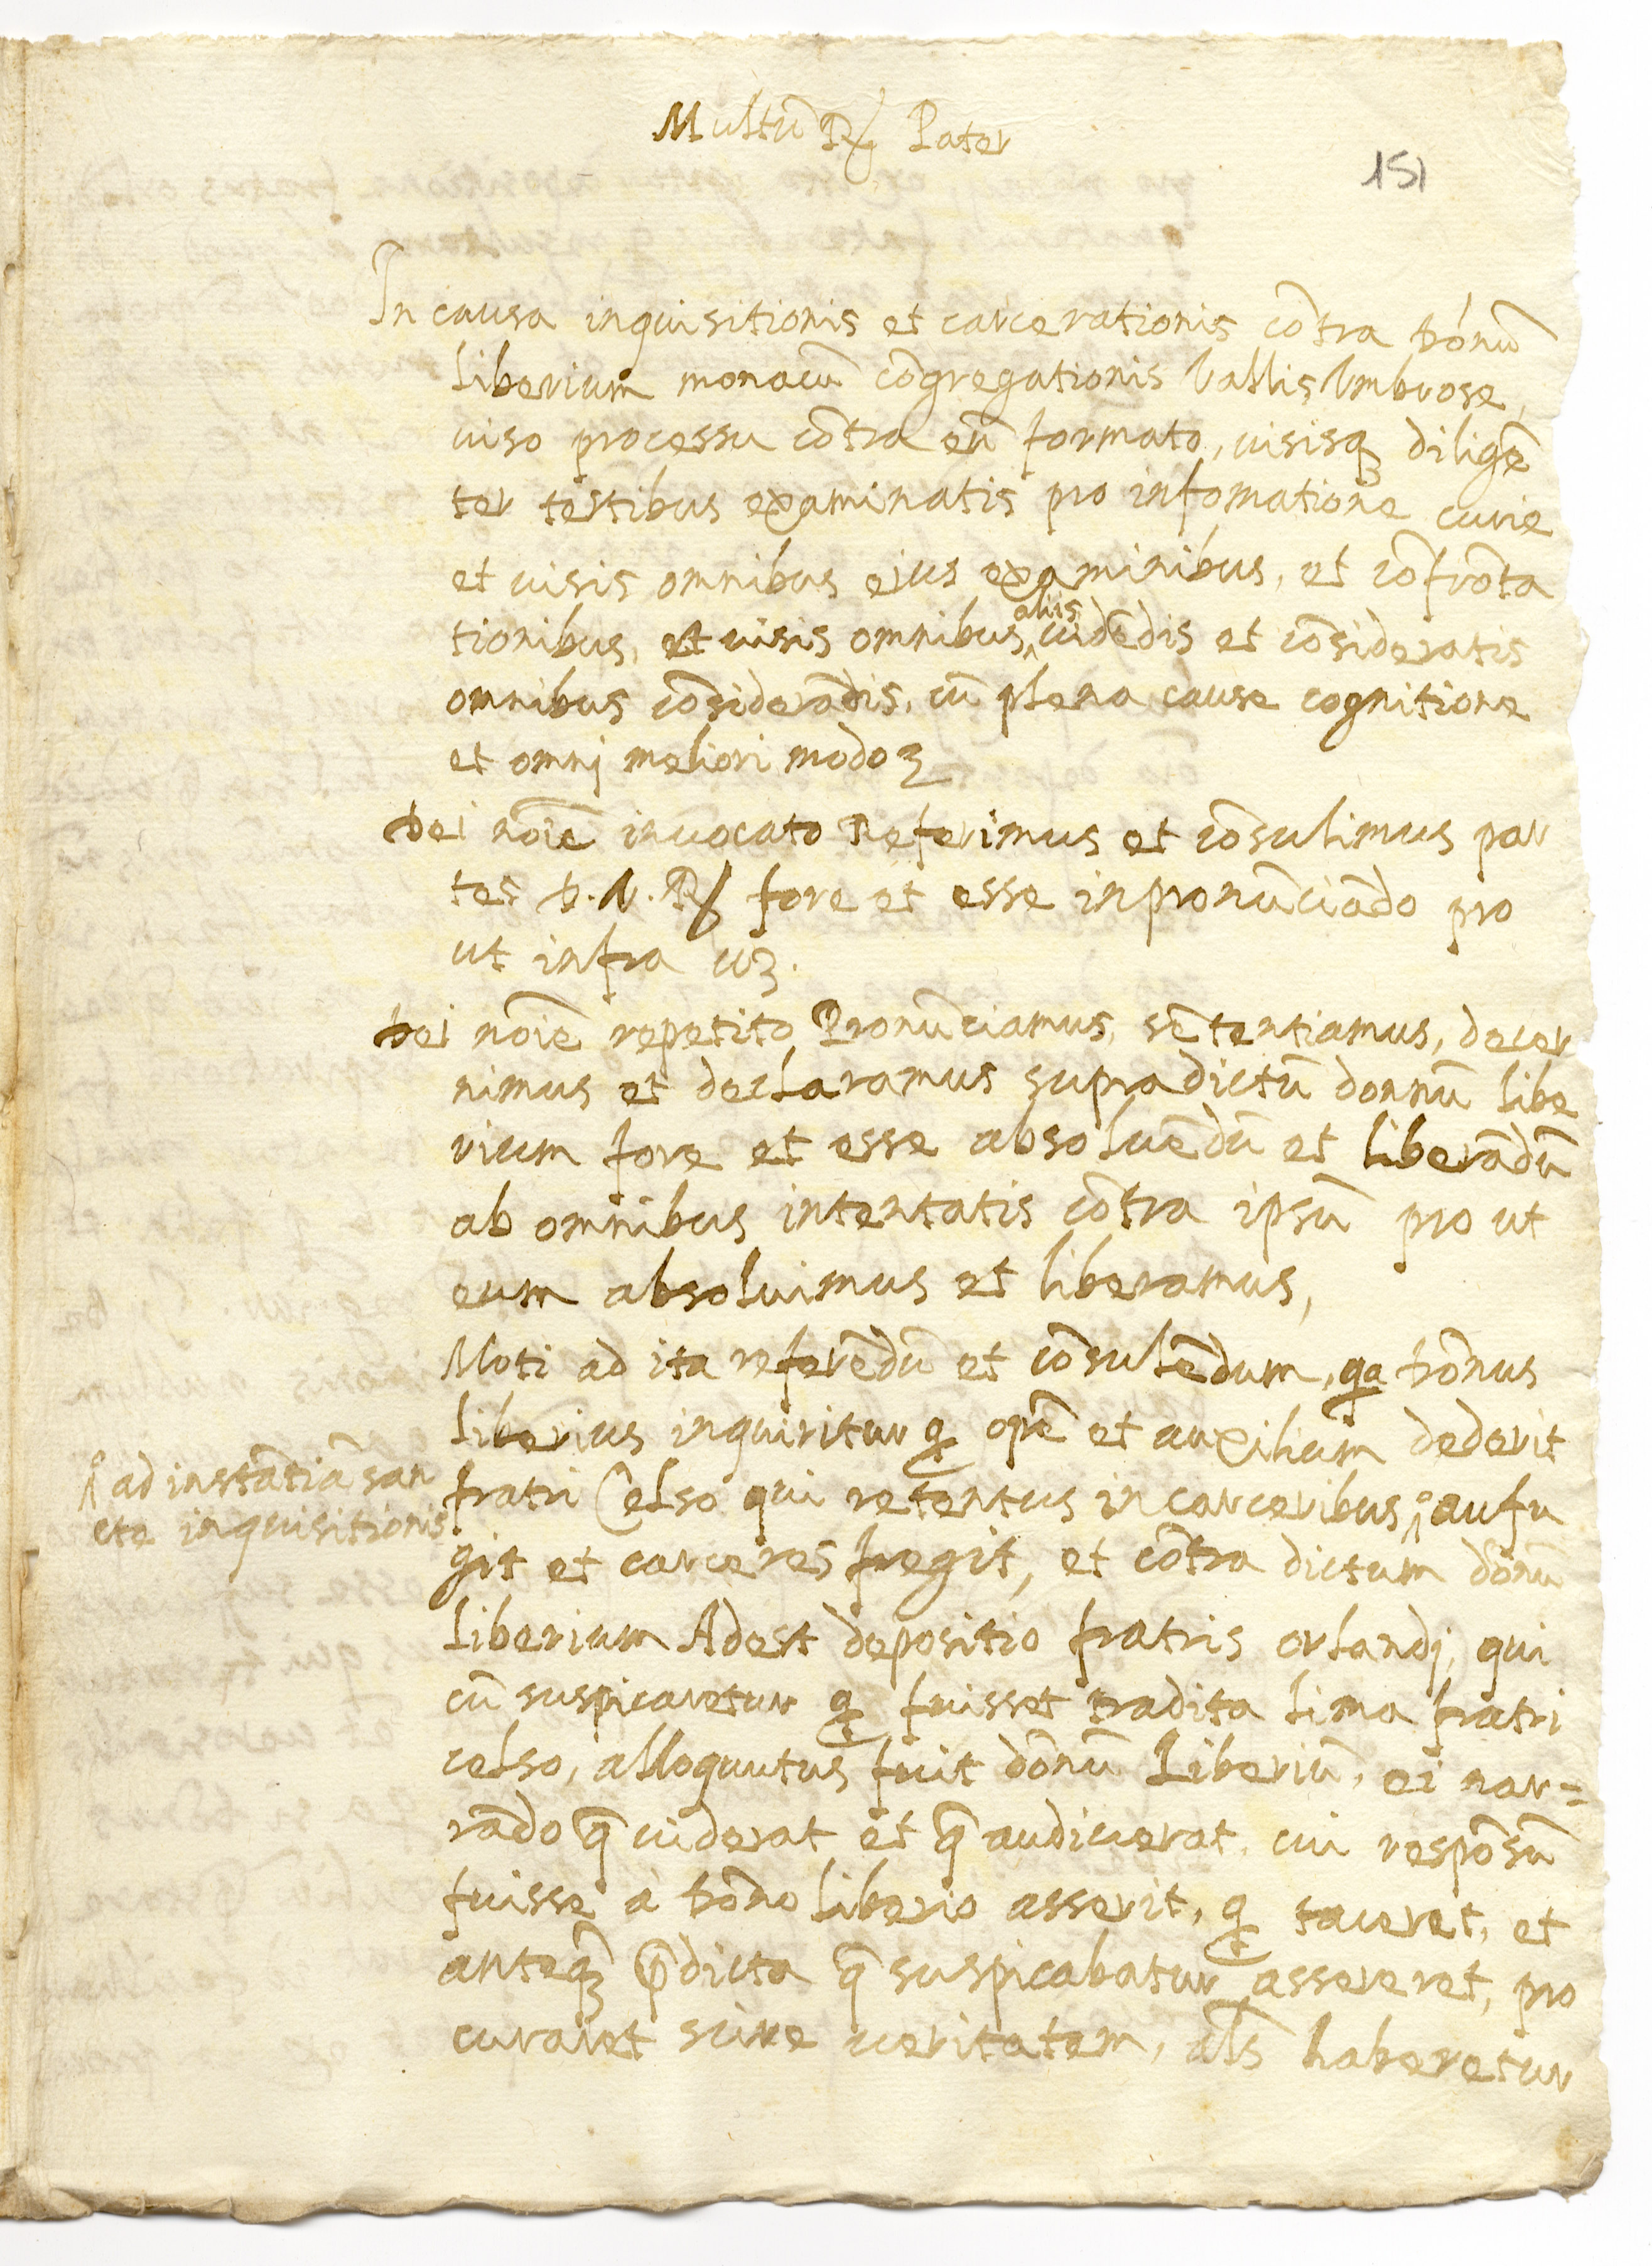 Multũ R͂ Pater
151
In causa inquisitionis et carcerationis cõtra Dõnũ
Liberium monacũ cõgregationis Vallis Vmbrose,
uiso processu cõtra eũ formato, uisisq̃ diligẽ
ter testibus examinatis pro infomatione curie
et uisis omnibus eius examinibus, et cõfrõta
tionibus, et uisis omnibus ^alijs uidẽdis et cõsideratis
omnibus cõsiderãdis, cũ plena cause cognitione
et omnj meliori modo ꝫ
Dei noĩe inuocato Referimus et cõsulimus par
tes D. V. R͂ fore et esse inpronũciãdo pro
ut infra uꝫ.
Dei noĩe repetito Pronũciamus, sẽtentiamus, decer
nimus et declaramus supradictũ donnũ Libe
rium fore et esse absoluẽdũ et liberãdũ
ab omnibus intentatis cõtra ipsũ pro ut
eum absoluimus et liberamus,
Moti ad ita referẽdũ et cõsulẽdum, qa Dõnus
Liberius inquiritur ꝙ opẽ et auxilium dederit
fratri Celso qui retentus in carceribus, ^ aufu
^ ad instãtiã san
cte inquisitionis
git et carceres fregit, et cõtra dictum dõnũ
Liberium Adest depositio fratris orlandj, qui
cũ suspicaretur ꝙ fuisset tradita lima fratri
celso, alloquutus fuit dõnũ Liberiũ, ei nar=
rãdo q̃ uiderat et q̃ audiuerat, cui respõsũ
fuisse à Dõno Liberio asserit, ꝙ taceret, et
anteqꝫ p̃dicta q̃ suspicabatur assereret, pro
curaret scire ueritatem, al̃s haberetur